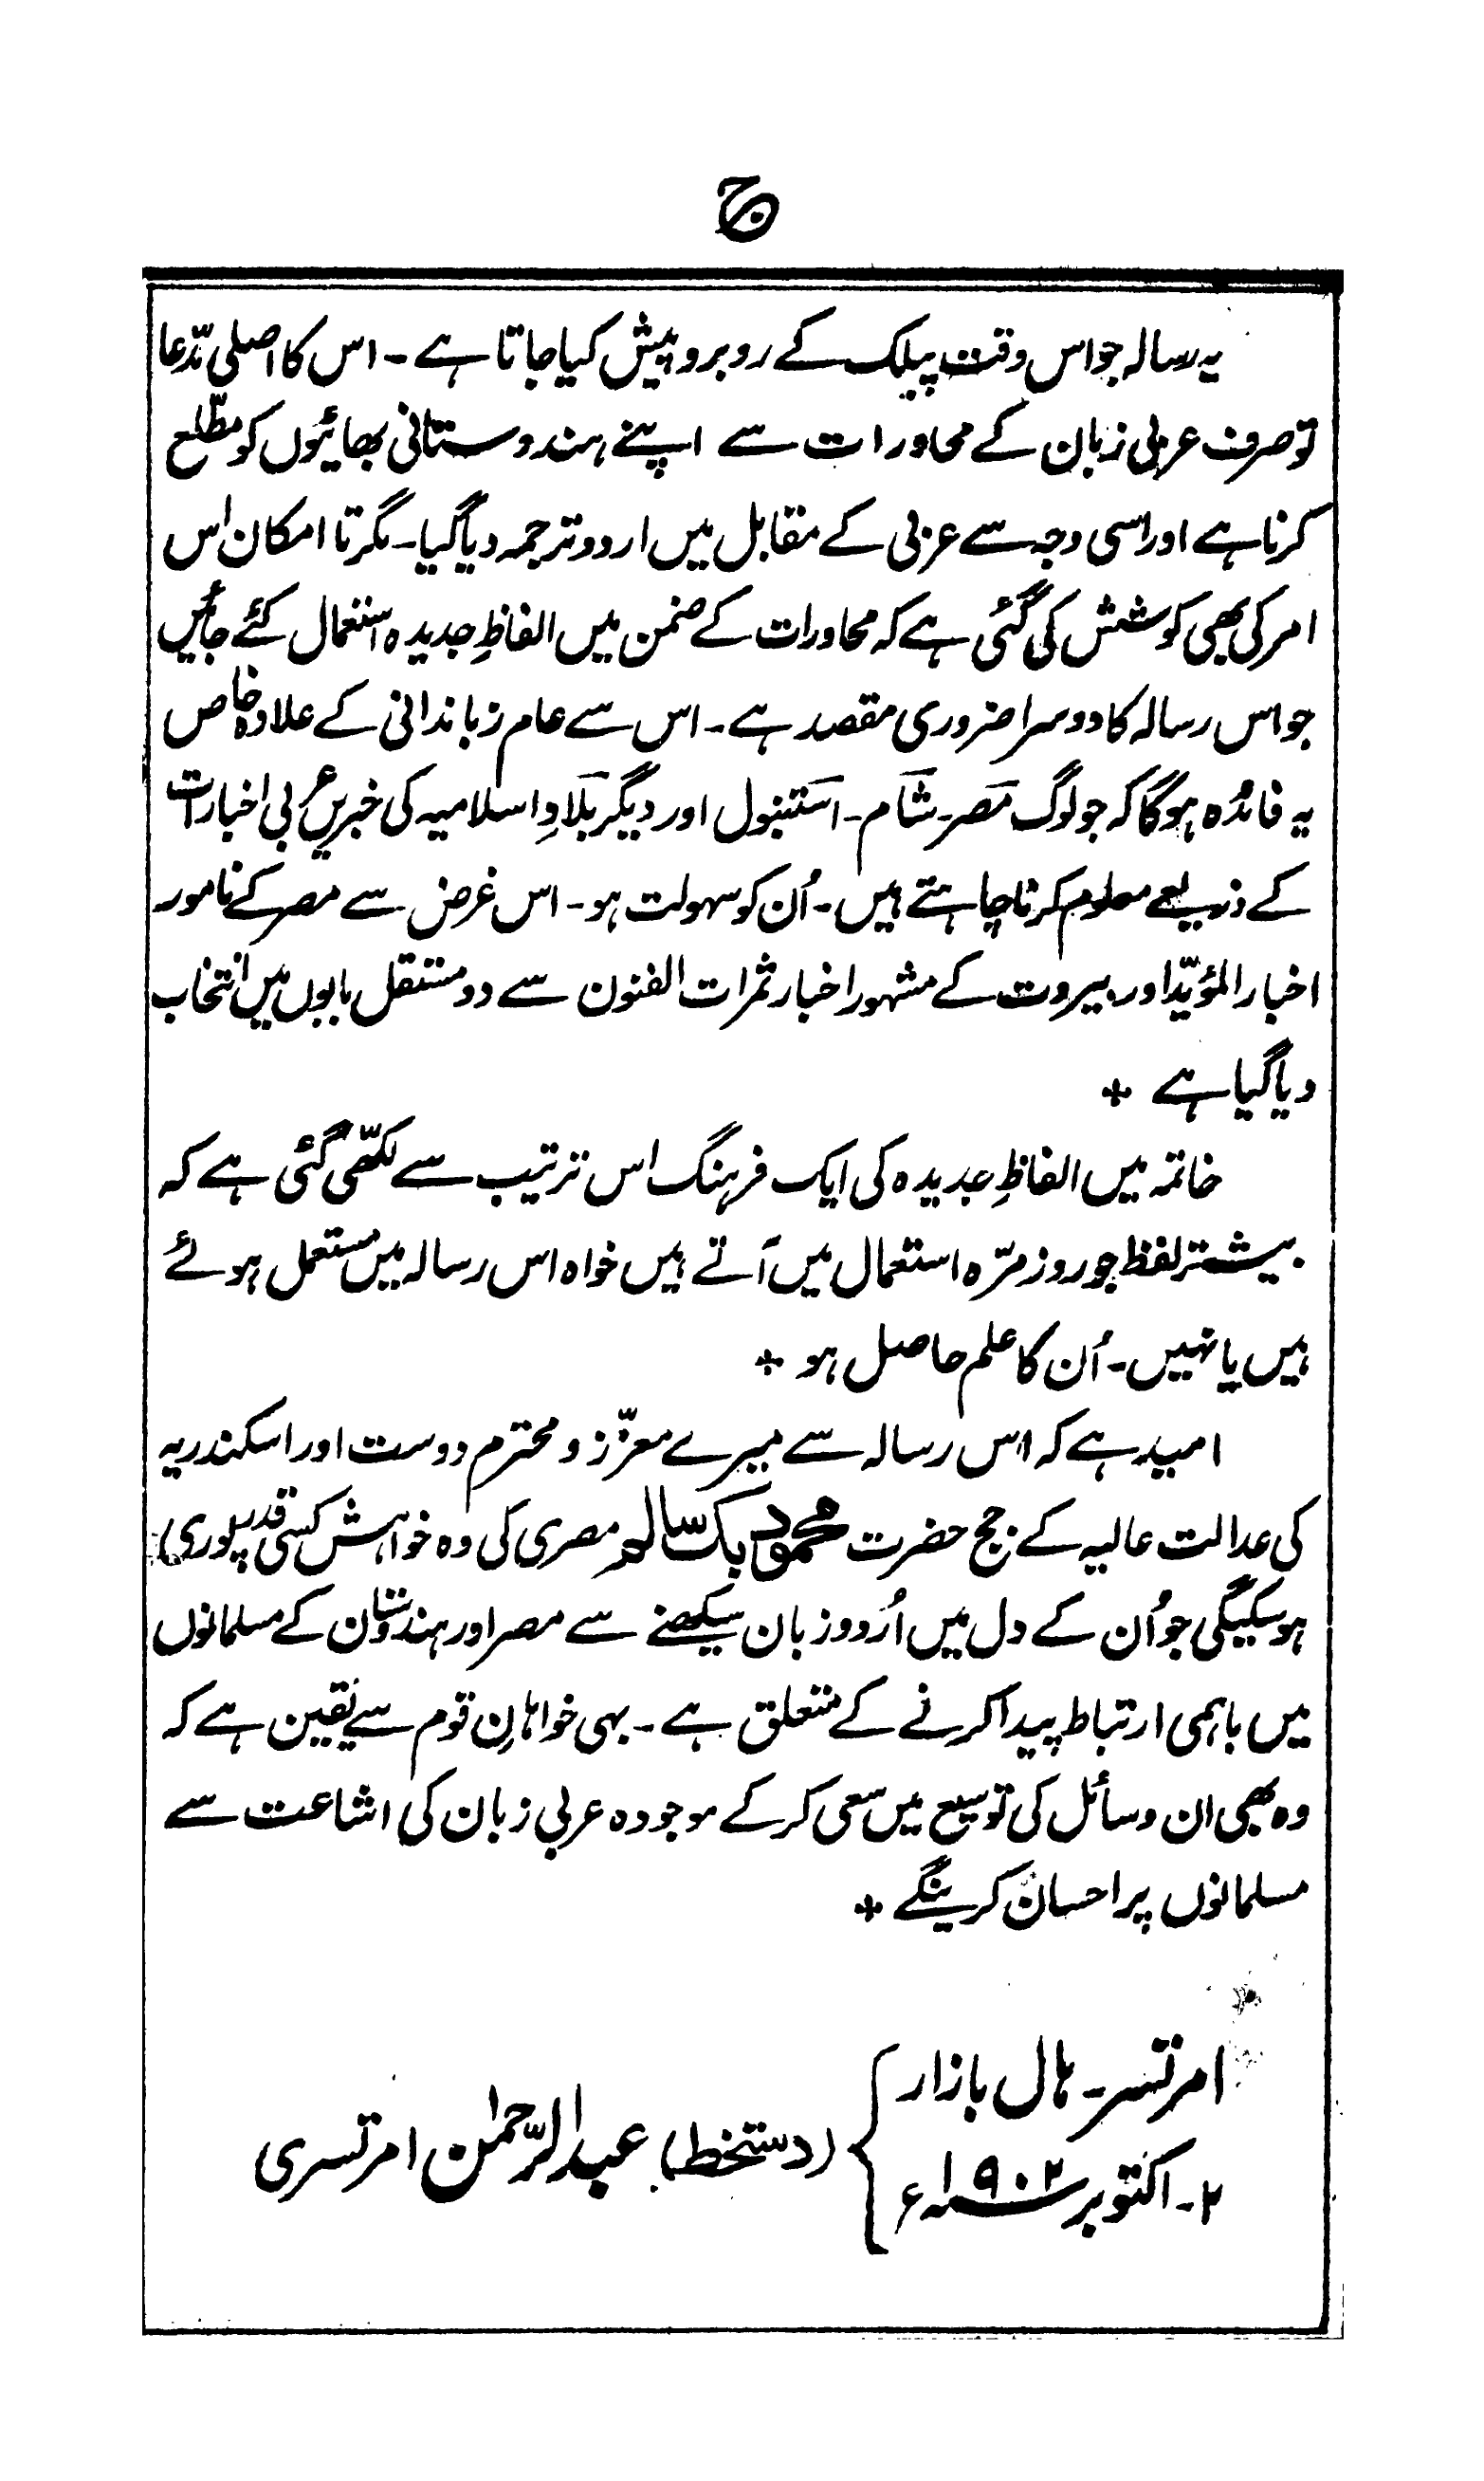 ج
یہ رسالہ جو اس وقت پبلک کے روبرو پیش کیا جاتا ہے ـ اس کا اصلی مدّعا
تو صرف عربی زبان کے محاورات سے اپنے ہندوستانی بھائیوں کو مطّلع
کرنا ہے اور اسی وجہ سے عربی کے مقابل میں اردو ترجمہ دیا گیا ـ مگر تا امکان اس
امر کی بھی کوشش کی گئی ہے کہ محاورات کے ضمن میں الفاظِ جدیدہ استعمال کئے جائیں
جو اس رسالہ کا دوسرا ضروری مقصد ہے ـ اس سے عام زباندانی کے علاوہ خاص
یہ فائدہ ہوگا کہ جو لوگ مصر ـ شام ـ استنبول اور دیگر بلادِ اسلامیہ کی خبریں عربی اخبارات
کے ذریعے معلوم کرنا چاہتے ہیں ـ اُن کو سہولت ہو ـ اس غرض سے مصر کے نامور
اخبار المؤیّد اور بیروت کے مشہور اخبار ثمرات الفنون سے دو مستقل بابوں میں انتخاب
دیا گیا ہے ٭
خاتمہ میں الفاظِ جدیدہ کی ایک فرہنگ اس ترتیب سے لکھّی گئی ہے کہ
بیشتر لفظ جو روز مرّہ استعمال میں آتے ہیں خواہ اس رسالہ میں مستعمل ہوئے
ہیں یا نہیں ـ اُن کا علم حاصل ہو ٭
امید ہے کہ اس رسالہ سے میرے معزّز و محترم دوست اور اسکندریہ
کی عدالت عالیہ کے جج حضرت محمود بک سالم مصری کی وہ خواہش کسی قدر پوری
ہو سکیگی جو اُن کے دل میں اُردو زبان سیکھنے سے مصر اور ہندوستان کے مسلمانوں
میں باہمی ارتباط پیدا کرنے کے متعلق ہے ـ بہی خواہانِ قوم سے یقین ہے کہ
وہ بھی ان وسائل کی توسیع میں سعی کر کے موجودہ عربی زبان کی اشاعت سے
مسلمانوں پر احسان کرینگے ٭
امرتسر ـ ہال بازار
۲ ـ اکتوبر ۱۹۰۲ء
(دستخط) عبدالرّحمٰن امرتسری